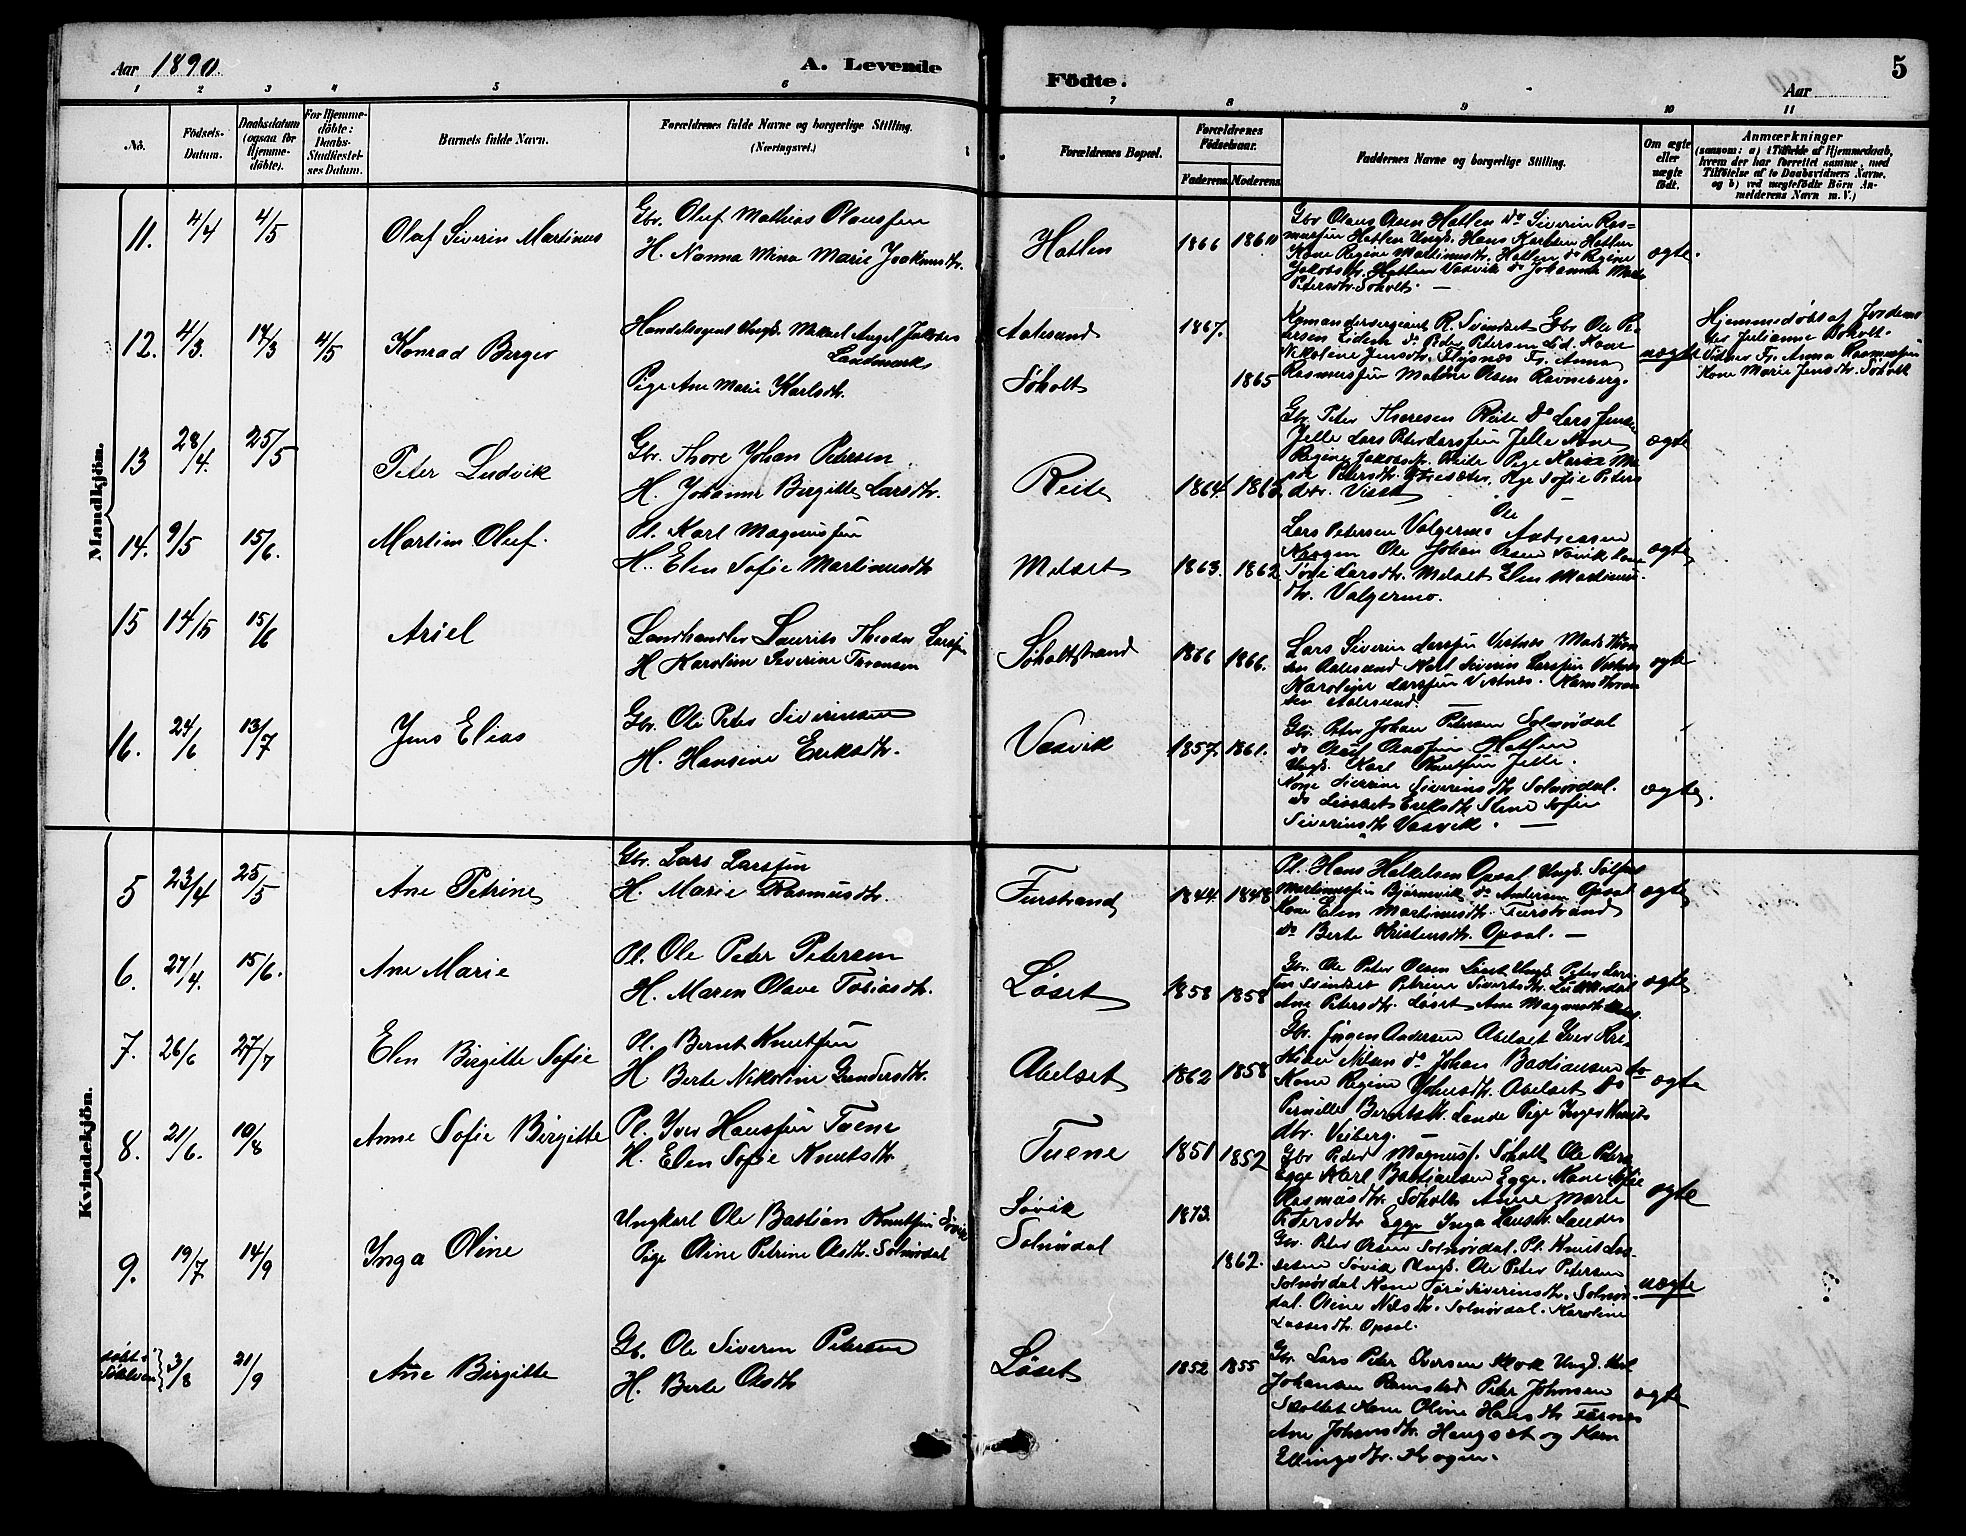 Aar 1890.
A. Levende
Födte.
Aar
5
1 2 3 4 5 6 7 8 9 10 11
No.
Födsels-
Datum.
Daabsdatum
(ogsaa for
Hjemme-
döbte).
For Hjemme-
döbte:
Daabs-
Stadfæstel-
ses Datum.
Barnets fulde Navn.
Forældrenes fulde Navne og borgerlige Stilling.
(Næringsvei.)
Forældrenes Bopæl.
Forældrenes
Födselsaar.
Faderens. Moderens.
Faddernes Navne og borgerlige Stilling.
Om ægte
eller
uægte
født.
Anmærkninger
(saasom: a) i Tilfælde af Hjemmedaab,
hvem der har forrettet samme, med
Tilföielse af to Daabsvidners Navne,
og b) ved uægtefödte Börn An-
melderens Navn m. V.)
Mandkjön.
11. 4/4 4/5 Olaf Siverin Martinus
Gbr. Oluf Mathias Olaussen
H. Nanna Mina Marie Joakimsdtr.
Hatlen 1866
Gbr Olaus Olsen Hatlen do Siverin Ras-
mussen Hatlen Ungk. Hans Karlsen Hatlen
Kone Regine Martinusdtr. Hatlen do Regine
Jakobsdtr. Hatlen Vasvik do Johanna
Petersdtr. Søholt. —
ægte.
12. 4/3. 17/3 4/5 Konrad Birger
Handelsagent Ungk. Mikael Angel Jakobsen
Landmark
Pige Ane Marie Karlsdtr.
Aalesund 1867.
Søholt 1865
Komandersergeant R. Svindset Gbr Ole Pe-
tersen Lidesh do Peder Petersen Lid. Kone
Nikoline Jensdtr. Flisnæs Fr. Anna
Rasmussen Olsen Ravneberg.
uægte
Hjemmedøbt af Jordemo-
der Julianne Søholt.
Vidner Fr. Anna Rasmussen
Kone Marie Jensdtr. Søholt
13 28/4. 25/5 Peter Ludvik
Gbr. Thore Johan Petersen
H. Johanne Birgitte Larsdtr.
Reite 1864.
Gbr. Peter Thoresen Reite do Lars Jensen
Jelle Lars Peter Larssen Jelle Kone
Regine Jakobsdtr. Reite Pige Petersdtr.
Pige Sofie Peters
dtr.
ægte
14. 9/5 15/6. Martin Oluf.
Pl. Karl Magnussen
H. Elen Sofie Martinusdtr
Melset 1863. 1862
Lars Petersen Valgermo Ole Andreasen
Krogen Ole Johan Olsen Søvik Kone
Larsdtr. Melset Elen Martinus-
dtr. Valgermo.
ægte
15 14/5 15/6 Ariel
Landhandler Laurits Theodor Larssen
H Karoline Siverine
Søholtstrand 1866 1866.
Lars Siverin Larssen Vestnes
Aalesund Karl Siverin Larssen Vestnes
Larssen Vestnæs.
Aalesund. —
ægte
16. 24/6 13/7 Jens Elias
Gbr. Ole Peter Siverinsen
H. Hansine Eriksdtr.
Vasvik 1857. 1861.
Gbr. Peter Johan Petersen Solnørdal
do Oluf Hatlen
Ungk. Karl Knutsen Jelle.
Kone Siverinsdtr Solnørdal.
do Eriksdtr Stine Sofie
Siverinsdtr Vasvik. —
ægte.
Kvindekjön.
5 23/4 25/5 Ane Petrine
Gbr. Lars Larssen
H. Marie Rasmusdtr.
Furstrand 1844. 1848
Pl. Hans Opsal Ungk.
Martinussen Bjørnevik do Andersen Opsal
Kone Elen Martinusdtr. Furstrand
do Berte Kristensdtr. Opsal. —
ægte
6. 27/4. 15/6. Ane Marie
Pl. Ole Peter Petersen
H. Maren Olave Tobiasdtr.
Løset 1858 1858
Gbr. Ole Peter Olsen Løset Ungk. Peter Lars-
sen Svindset Petrine Sivertsdtr.
Ane Petersdtr. Løset Ane Magnusdtr.
ægte
7. 26/6 27/7 Elen Birgitte Sofie
Pl. Bernt Knutsen
H Berte Nikoline Gundersdtr.
Abelset 1862 1858
Gbr. Jørgen Andersen Abelset Kri-
Nilsen do Johan Bastiansen do
Kone Regine Johnsdtr. Abelset do
Pernille Berntsdtr. Lande Pige Inger Knuts
dtr. Viiberg. —
ægte
8. 21/6. 10/8 Anne Sofie Birgitte
Pl. Iver Hanssen Tuene
H. Elen Sofie Knutsdtr.
Tuene 1851 1852
Gbr Peder Magnuss. Søholt Ole Peters
Egge Karl Bastiansen Egge. Kone
Rasmusdtr. Søholt Anne Marie
Petersdtr Egge Inga Hansdtr. Lande
ægte
9. 19/7 14/9 Inga Oline
Ungkarl Ole Bastian Knutsen Søvik
Pige Oline Petrine Olsdtr. Solnørdal
Søvik 1873.
Solnørdal 1862.
Gbr. Peter Olsen Solnørdal. Pl. Knut Las-
sesen Søvik Ungk. Ole Peter Petersen
Solnørdal Kone Siverinsdtr. Solnør-
dal. Oline Nilsdtr. Solnørdal. Karoline
Lassesdtr. Opsal.
uægte
døbt i 3/8 21/9 Ane Birgitte
Gb. Ole Siverin Petersen
H. Berte Olsdtr
Løset 1852 1855
Gbr. Lars Peter Iversen Ungk. Karl
Johansen Ramstad Peter Johnsen
Kone Oline Hansdtr
Ane Johansdtr. Haugset og Karn
Ellingsdtr. Krogen.
ægte